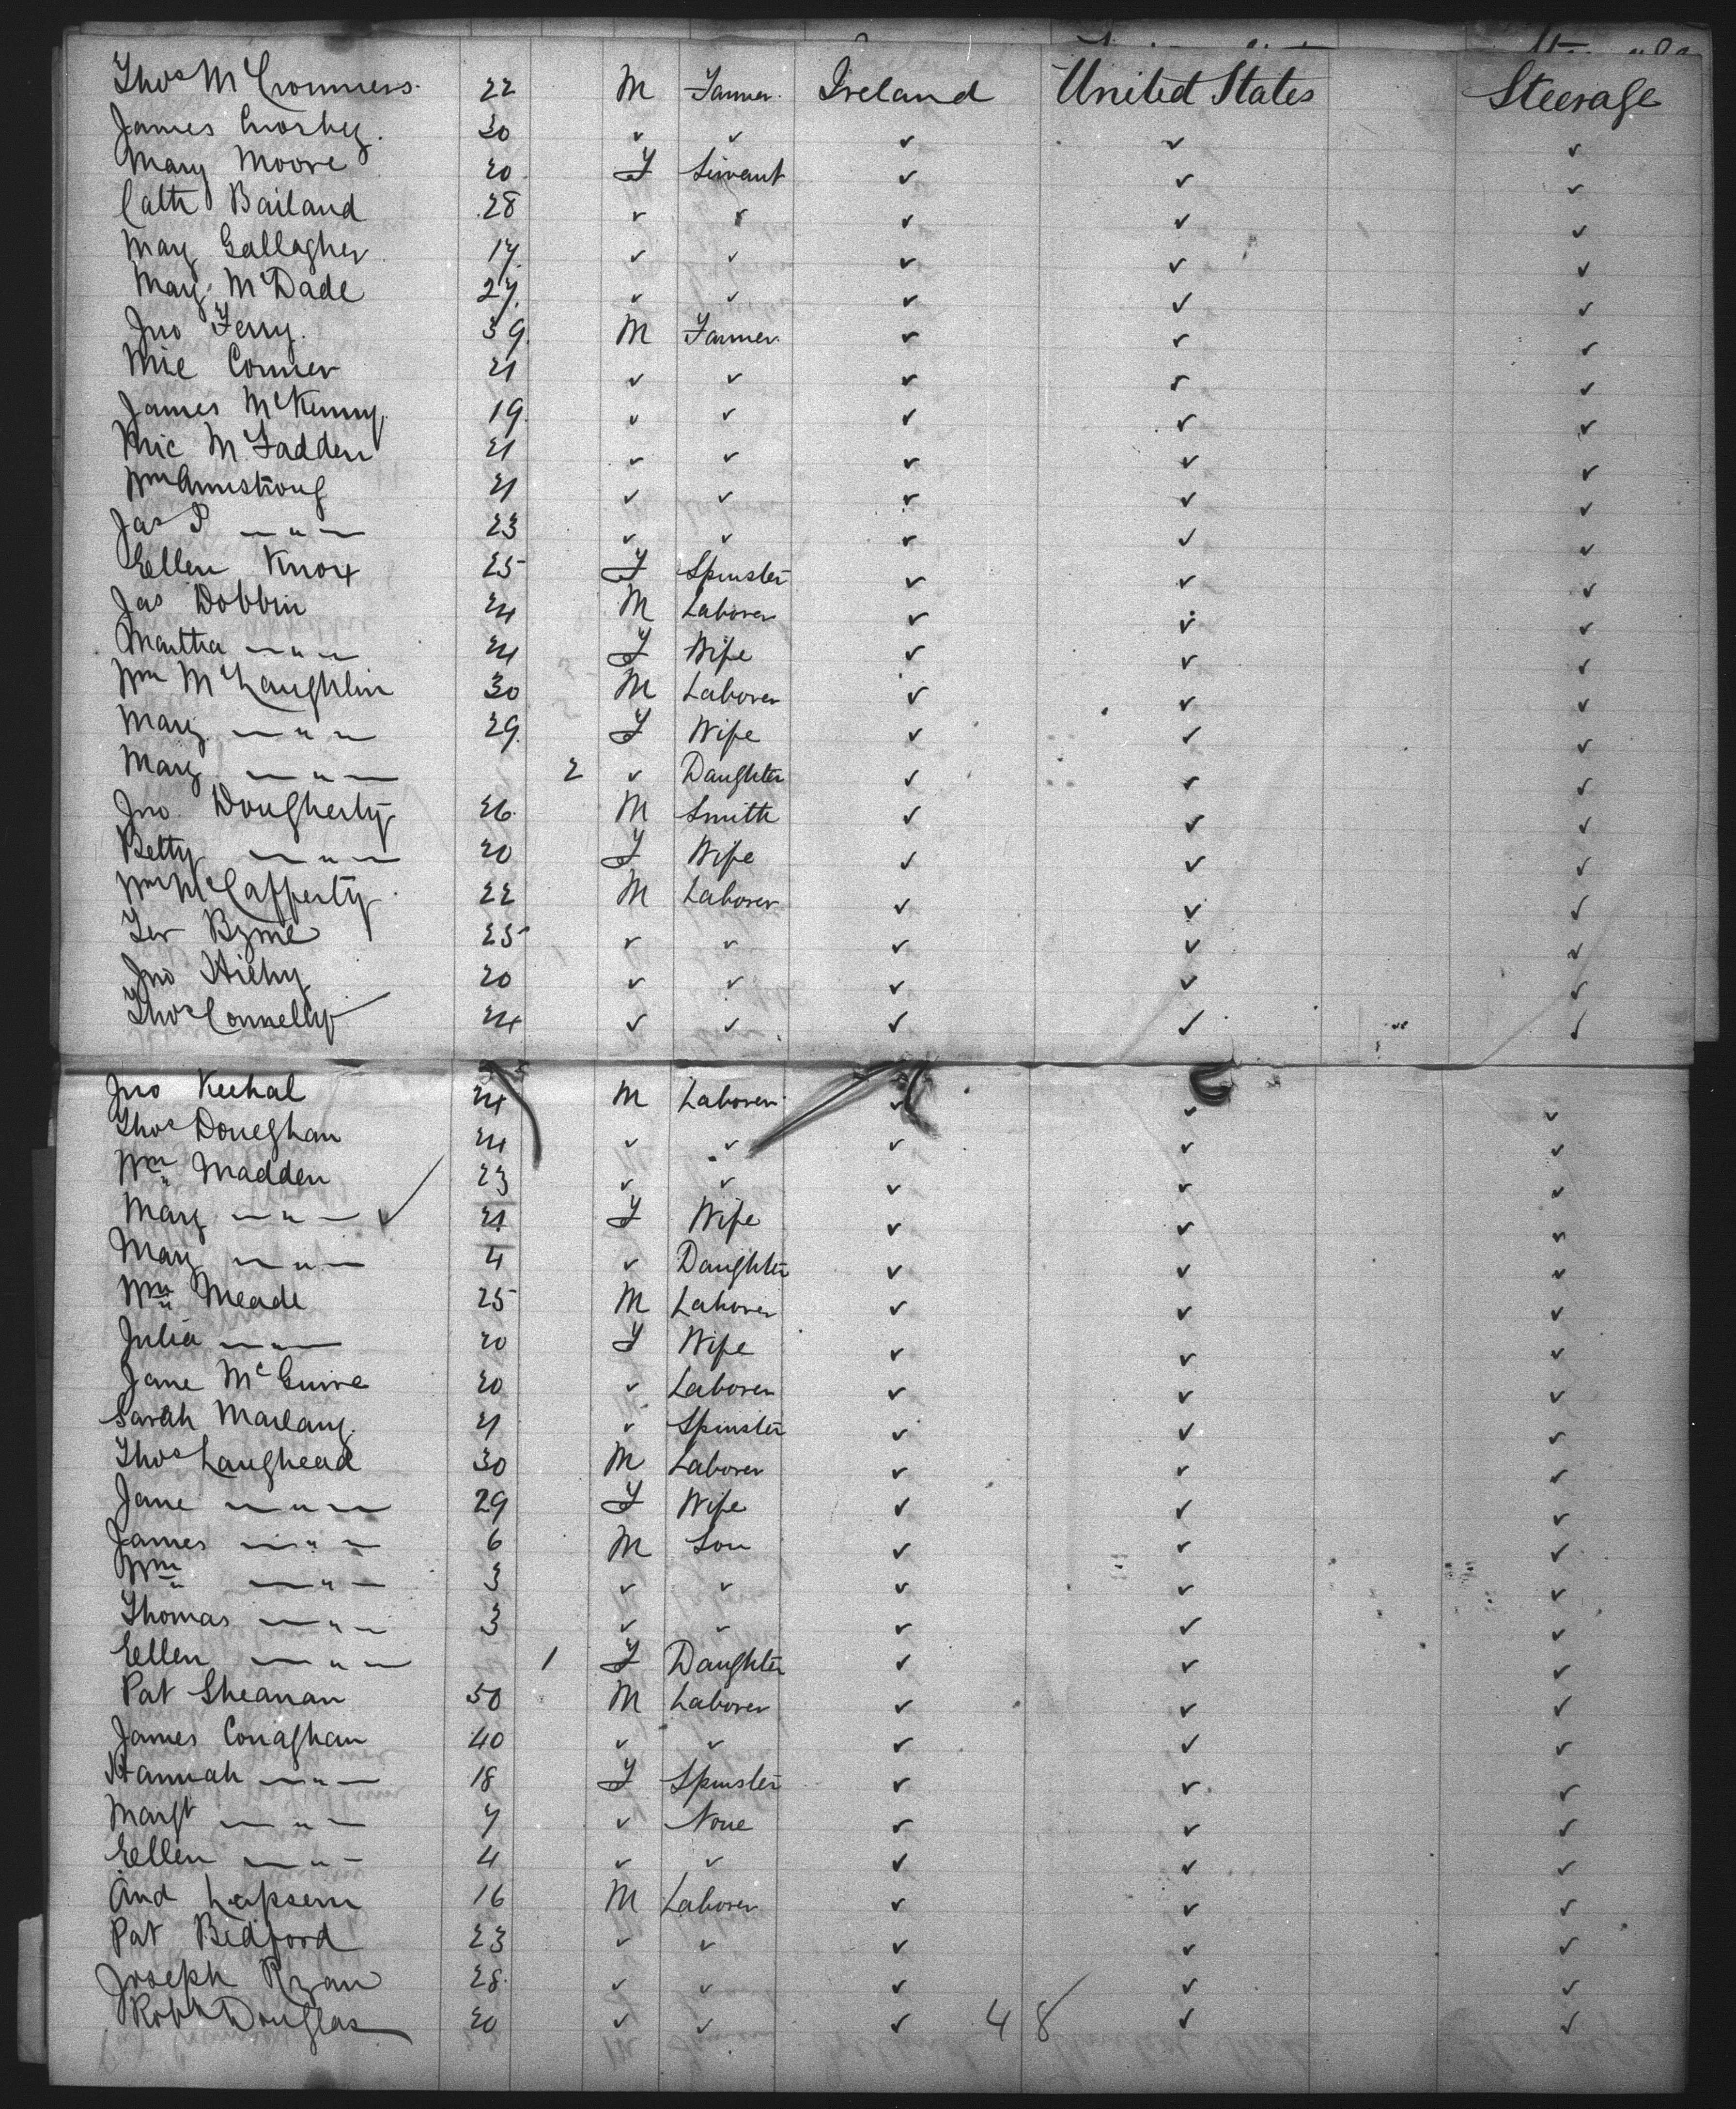 Thos McCrommers 22 M Farmer Ireland United States Steerage
James Crosbey 30 " " " " "
Mary Moore 20 F Servant " " "
Cath Bailand 28 " " " " "
Mary Gallagher 17 " " " " "
Mary McDade 27 " " " " "
Jno Ferry 39 M Farmer " " "
Mic Conner 21 " " " " "
James McKenny 19 " " " " "
Mic McFadden 21 " " " " "
Wm Armstrong 21 " " " " "
Jas P — " — 23 " " " " "
Eellen Knox 25 F Spinster " " "
Jas Dobbin 24 M Laborer " " "
Martha — " — 24 F Wife " " "
Wm McLaughlin 30 M Laborer " " "
Mary — " — 29 F Wife " " "
Mary — " — 2 " Daughter " " "
Jno Dougherty 26 M Smith " " "
Betty — " — 20 F Wife " " "
Wm McCafferty 22 M Laborer " " "
Ter Byrne 25 " " " " "
Jno Hichy 20 " " " " "
Thos Connelly 24 " " " " "
Jno Keehal 24 M Laborer " " "
Thos Doneghan 24 " " " " "
Wm Madden 23 " " " " "
Mary — " — 21 F Wife " " "
Mary — " — 4 " Daughter " " "
Wm Meade 25 M Laborer " " "
Julia — " — 20 F Wife " " "
Jane McGuire 20 " Laborer " " "
Sarah Marlany 21 " Spinster " " "
Thos Laughead 30 M Laborer " " "
Jane — " — 29 F Wife " " "
James — " — 6 M Son " " "
Wm — " — 3 " " " " "
Thomas — " — 3 " " " " "
Eellen — " — 1 F Daughter " " "
Pat Sheanan 50 M Laborer " " "
James Conaghan 40 " " " " "
Hannah — " — 18 F Spinster " " "
Margt — " — 7 " None " " "
Eellen — " — 4 " " " " "
And Lapsem 16 M Laborer " " "
Pat Bedford 23 " " " " "
Joseph Ryan 28 " " " " "
Robt Douglas 20 " " " 48 " "